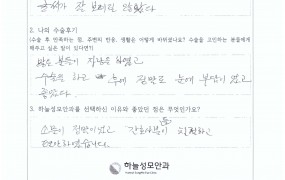 글씨가 잘 보이진 않았다
2. 나의 수술후기
(수술 후 만족하는 점, 주변의 반응, 생활은 어떻게 바뀌었나요? 수술을 고민하는 분들에게
해주고 싶은 말이 있다면?)
많은 분들이
수술을 하고 눈에 부담이 없고
좋았다.
3. 하늘성모안과를 선택하신 이유와 좋았던 점은 무엇인가요?
소문이 많이 있고 간호사분들 친절하고
편안하였습니다.
하늘성모안과